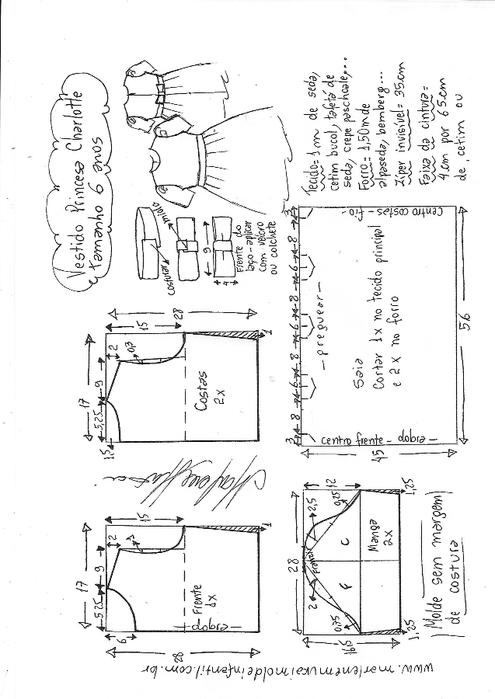 Vestido Princesa Charlotte
tamanho 6 anos
Tecido = 1m de seda,
cetim bucol, tafetá de
seda, crepe paschoale,...
Forro = 1,50m de
alpaseda, bemberg...
Ziper invisível = 35cm
Faixa da cintura =
4cm por 65cm
de cetim ou
costura
miolo
9
4
Frente do
laço - aplicar
com velcro
ou colchete
17
5,25
9
2
15
28
1,5
Costas
2x
1
Centro costas - fio -
3
8
6
8
6
8
6
8
3
- preguear -
Saia
Cortar 1x no tecido principal
e 2x no forro
centro frente - dobra
45
56
17
5,25
9
2
15
6
28
Frente
1x
dobra
1
28
12
2,5
0,25
2
0,75
frente
F
C
Manga
2x
16,5
1,25
1,25
Molde sem margem
de costura
www.marlenemukaimoldeinfantil.com.br